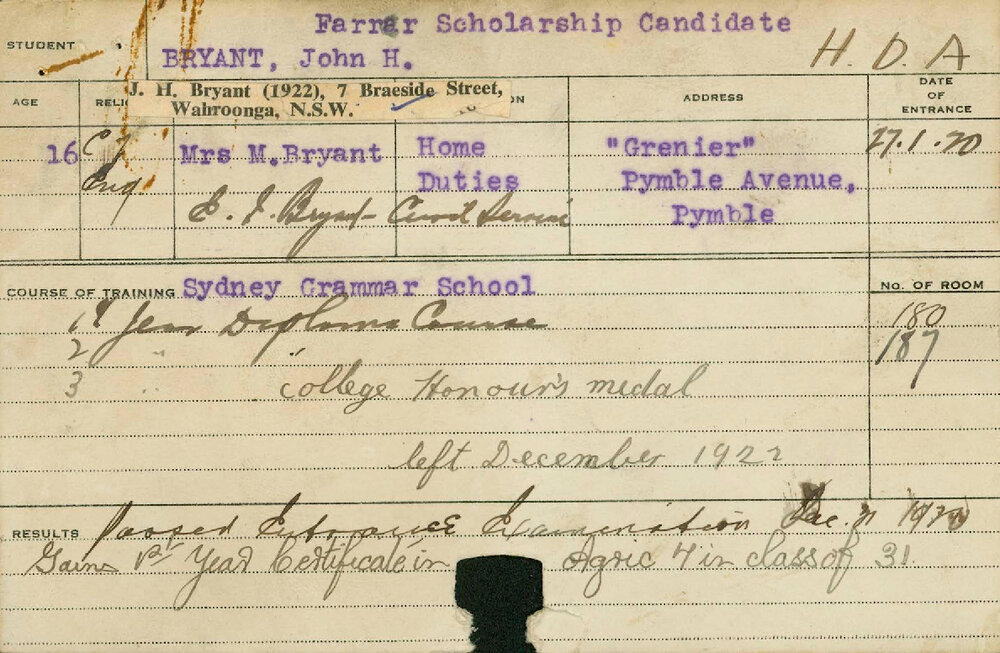 Farrar Scholarship Candidate
STUDENT
BRYANT, John H.
H. D. A
AGE
RELIG
J. H. Bryant (1922), 7 Braeside Street,
Wahroonga, N.S.W.
ON
ADDRESS
DATE
OF
ENTRANCE
16
C of
Eng
Mrs M.Bryant
Home
Duties
"Grenier"
Pymble Avenue,
Pymble
27.1.20
E. J. Bryant - Civil Service
COURSE OF TRAINING Sydney Grammar School
No. OF ROOM
1st Year Diploma Course
180
2 " "
187
3 " college Honour's medal
left December 1922
RESULTS Passed Entrance Examination Dec.
Gains 1st Year Certificate in Agric 4 in class of 31.